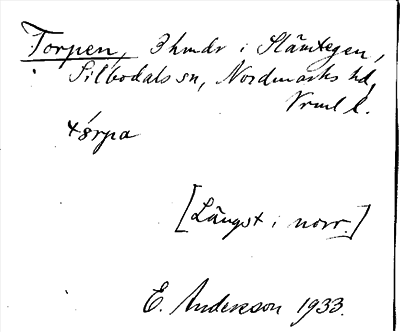 Torpen, 3 hmdr i Slämtegen,
Silbodals sn, Nordmarks hd,
Vrml l.
tórpa
[Längst i norr.]
E. Andersson 1933.